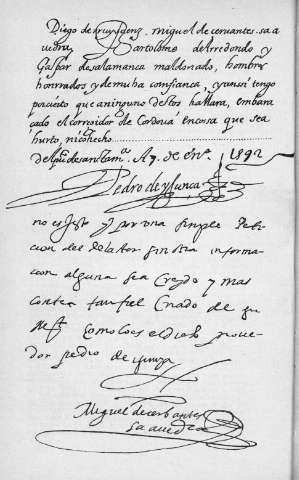 Diego de ruy saenz, miguel de cervantes saa
vedra Bartolome de Arredondo y
Gaspar de salamanca maldonado, hombres
honrrados y de mucha confiança, y ansi tengo
por cierto que a ninguno destos hallara, embara
çado el corregidor de Cordoua En cosa que sea
hurto, ni cohecho
del de santam.ª A 7. de En.º 1892
Pedro de ysunça
no es justo q por una simple Peti
cion del delator sin otra informa
cion alguna sea Creydo y mas
contra tan fiel Criado de su
mag.t como lo es el dicho provee
dor pedro de ysunça
Miguel de cerbantes
saavedra